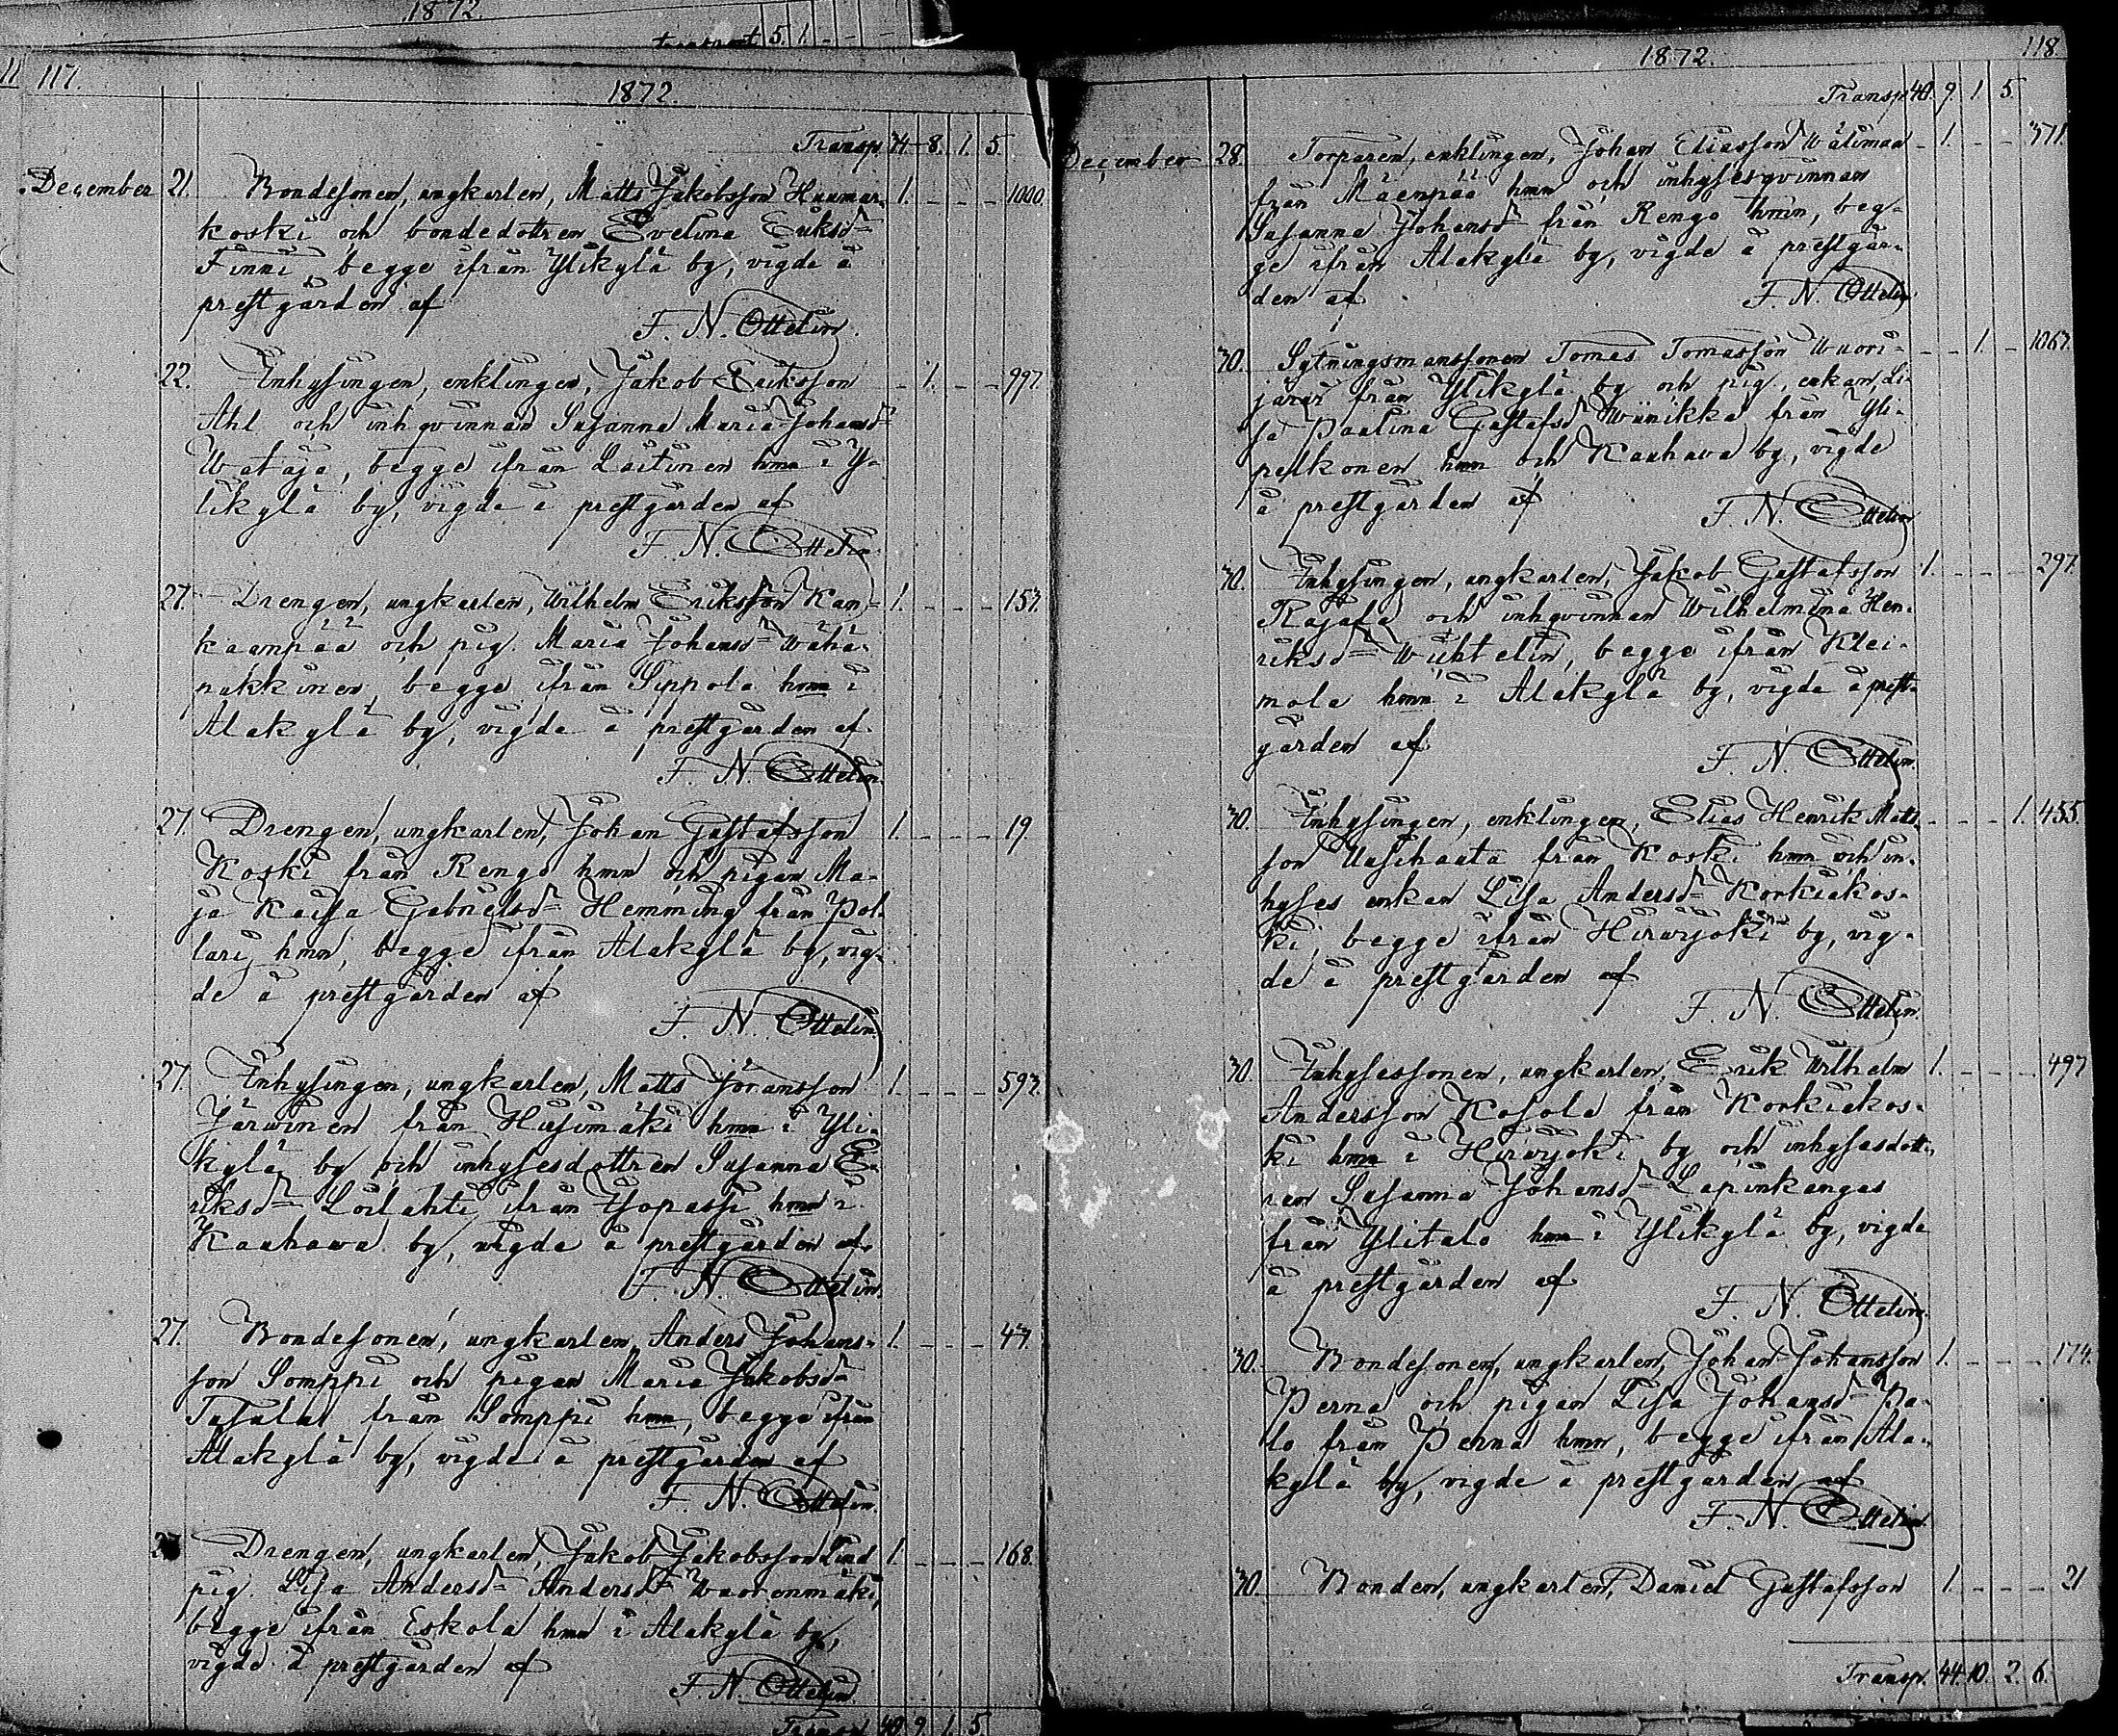 1872.
transport 5. 1. - - -
117.
1872.
Transp. 34 8. 1. 5.
December 21. Bondesonen, ungkarlen, Matts Jakobsson Haamar- 1. - - - 1000.
koski och bondedottren Evelina Eriksd=
Finni, begge ifrån Ylikylä by, vigde å
prestgården af
F. N. Ottelin
22. Inhysingen, enklingen, Jakob Eriksson - 1. - - 997.
Ahl och inhqvinnan Susanna Maria Johansd=
Wataja, begge ifrån Laitinen hmn i Y-
likylä by, vigde å prestgården af
F. N. Ottelin.
27. Drengen, ungkarlen, Wilhelm Eriksson Kan- 1. - - - 157.
kaanpää och pig. Maria Johansd= Wähä-
pakkinen, begge ifrån Sippola hmn i
Alakylä by, vigde å prestgården af
F. N. Ottelin.
27. Drengen, ungkarlen, Johan Gustafsson 1. - - - - 19.
Koski från Rengo hmn och pigan Ma-
ja Kaisa Gabrielsd= Hemming från Pol-
lari hmn, begge ifrån Alakylä by, vig-
de å prestgården af
F. N. Ottelin.
27. Inhysingen, ungkarlen, Matts Johansson 1. - - - - 597.
Järwinen från Hisimäki hmn i Yli-
kylä by och inhysesdottren Susanna E-
riksd= Loilahti ifrån Yopassi hmn i
Kauhawa by, vigde å prestgården af
F. N. Ottelin.
27. Bondesonen, ungkarlen, Anders Johans- 1. - - - - 47.
son Somppi och pigan Maria Jakobsd=
Tasala från Somppi hmn, begge ifrån
Alakylä by, vigde å prestgården af
F. N. Ottelin.
27. Drengen, ungkarlen, Jakob Jakobsson Lind 1. - - - - 168.
pig. Lisa Andersd= Andersd= Wuorenmäki,
begge ifrån Eskola hmn i Alakylä by,
vigde å prestgården af
F. N. Ottelin.
Transp. 40 9. 1. 5.
1872. 118
Transp. 40. 9. 1. 5.
December 28. Torparen, enklingen, Johan Eliasson Wälimaa - 1. - - 371.
från Mäenpää hmn och inhysesqvinnan
Susanna Johansd= från Rengo hmn, beg-
ge ifrån Alakylä by, vigde å prestgår-
den af F. N. Ottelin.
30. Sytningsmanssonen Tomas Tomasson Wuori- - - 1. - 1067.
järvi från Ylikylä by och pig., enkan, Li-
sa Paulina Gustafsd= Wänikka från Yli-
pelkonen hmn och Kauhava by, vigde
å prestgården af F. N. Ottelin
30. Inhysingen, ungkarlen, Jakob Gustafsson 1. - - - - 297.
Rajala och inhqvinnan Wilhelmina Hen-
riksd= Wihtelin, begge ifrån Klei-
mola hmn i Alakylä by, vigde å prest-
gården af F. N. Ottelin.
30. Inhysingen, enklingen, Elias Henrik Matts- - - - 1. 455.
son Uusihaata från Koski hmn och in-
hyses enkan Lisa Andersd= Korkiakos-
ki, begge ifrån Hirvijoki by, vig-
de å prestgården af
F. N. Ottelin.
30. Inhysessonen, ungkarlen, Erik Wilhelm 1. - - - - 497
Andersson Kosola från Korkiakos-
ki hmn i Hirvijoki by och inhysesdott-
ren Susanna Johansd= Lapinkangas
från Ylitalo hmn i Ylikylä by, vigde
å prestgården af F. N. Ottelin.
30. Bondesonen, ungkarlen, Johan Johansson 1. - - - - 174.
Perna och pigan Lisa Johansd= Pa-
lo från Perna hmn, begge ifrån Ala-
kylä by, vigde å prestgården af
F. N. Ottelin
30. Bonden, ungkarlen, Daniel Gustafsson 1. - - - - 21
Transp. 44. 10. 2. 6.